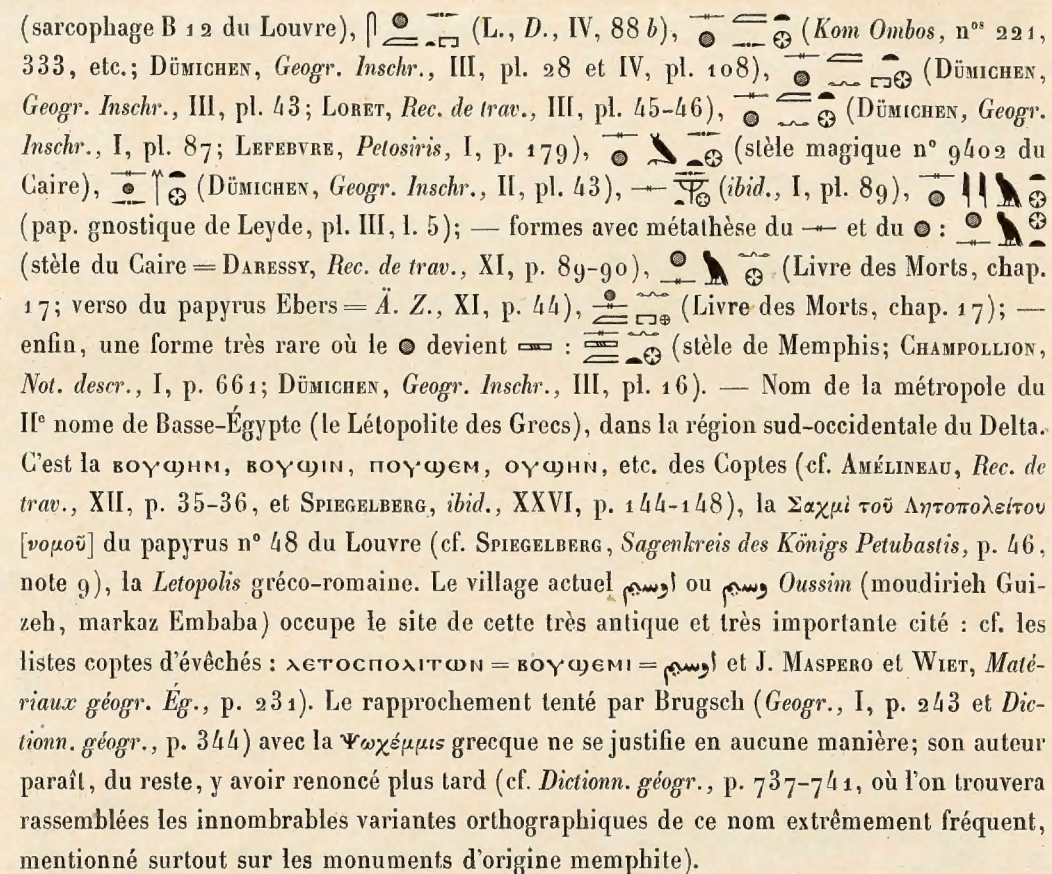 (sarcophage B 12 du Louvre), (L., D., IV, 88 b), (Kom Ombos, nᵒˢ 221,
333, etc.; Dümichen, Geogr. Inschr., III, pl. 28 et IV, pl. 108), (Dümichen,
Geogr. Inschr., III, pl. 43; Loret, Rec. de trav., III, pl. 45-46), (Dümichen, Geogr.
Inschr., I, pl. 87; Lefebvre, Petosiris, I, p. 179), (stèle magique n° 9402 du
Caire), (Dümichen, Geogr. Inschr., II, pl. 43), (ibid., I, pl. 89),
(pap. gnostique de Leyde, pl. III, l. 5); — formes avec métathèse du 𓊃 et du 𓐍 :
(stèle du Caire = Daressy, Rec. de trav., XI, p. 89-90), (Livre des Morts, chap.
17; verso du papyrus Ebers = Ä. Z., XI, p. 44), (Livre des Morts, chap. 17); —
enfin, une forme très rare où le 𓐍 devient 𓈙 : (stèle de Memphis; Champollion,
Not. descr., I, p. 661; Dümichen, Geogr. Inschr., III, pl. 16). — Nom de la métropole du
IIᵉ nome de Basse-Égypte (le Létopolite des Grecs), dans la région sud-occidentale du Delta.
C'est la ⲃⲟⲩϣⲏⲙ, ⲃⲟⲩϣⲓⲛ, ⲡⲟⲩϣⲉⲙ, ⲟⲩϣⲏⲛ, etc. des Coptes (cf. Amélineau, Rec. de
trav., XII, p. 35-36, et Spiegelberg, ibid., XXVI, p. 144-148), la Σαχμὶ τοῦ Λητοπολείτου
[νομοῦ] du papyrus n° 48 du Louvre (cf. Spiegelberg, Sagenkreis des Königs Petubastis, p. 46,
note 9), la Letopolis gréco-romaine. Le village actuel اوسيم ou وسيم Oussim (moudirieh Gui-
zeh, markaz Embaba) occupe le site de cette très antique et très importante cité : cf. les
listes coptes d'évêchés : ⲗⲉⲧⲟⲥⲡⲟⲗⲓⲧⲱⲛ = ⲃⲟⲩϣⲉⲙⲓ = اوسيم et J. Maspero et Wiet, Maté-
riaux géogr. Ég., p. 231). Le rapprochement tenté par Brugsch (Geogr., I, p. 243 et Dic-
tionn. géogr., p. 344) avec la Ψωχέμμις grecque ne se justifie en aucune manière; son auteur
paraît, du reste, y avoir renoncé plus tard (cf. Dictionn. géogr., p. 737-741, où l'on trouvera
rassemblées les innombrables variantes orthographiques de ce nom extrêmement fréquent,
mentionné surtout sur les monuments d'origine memphite).